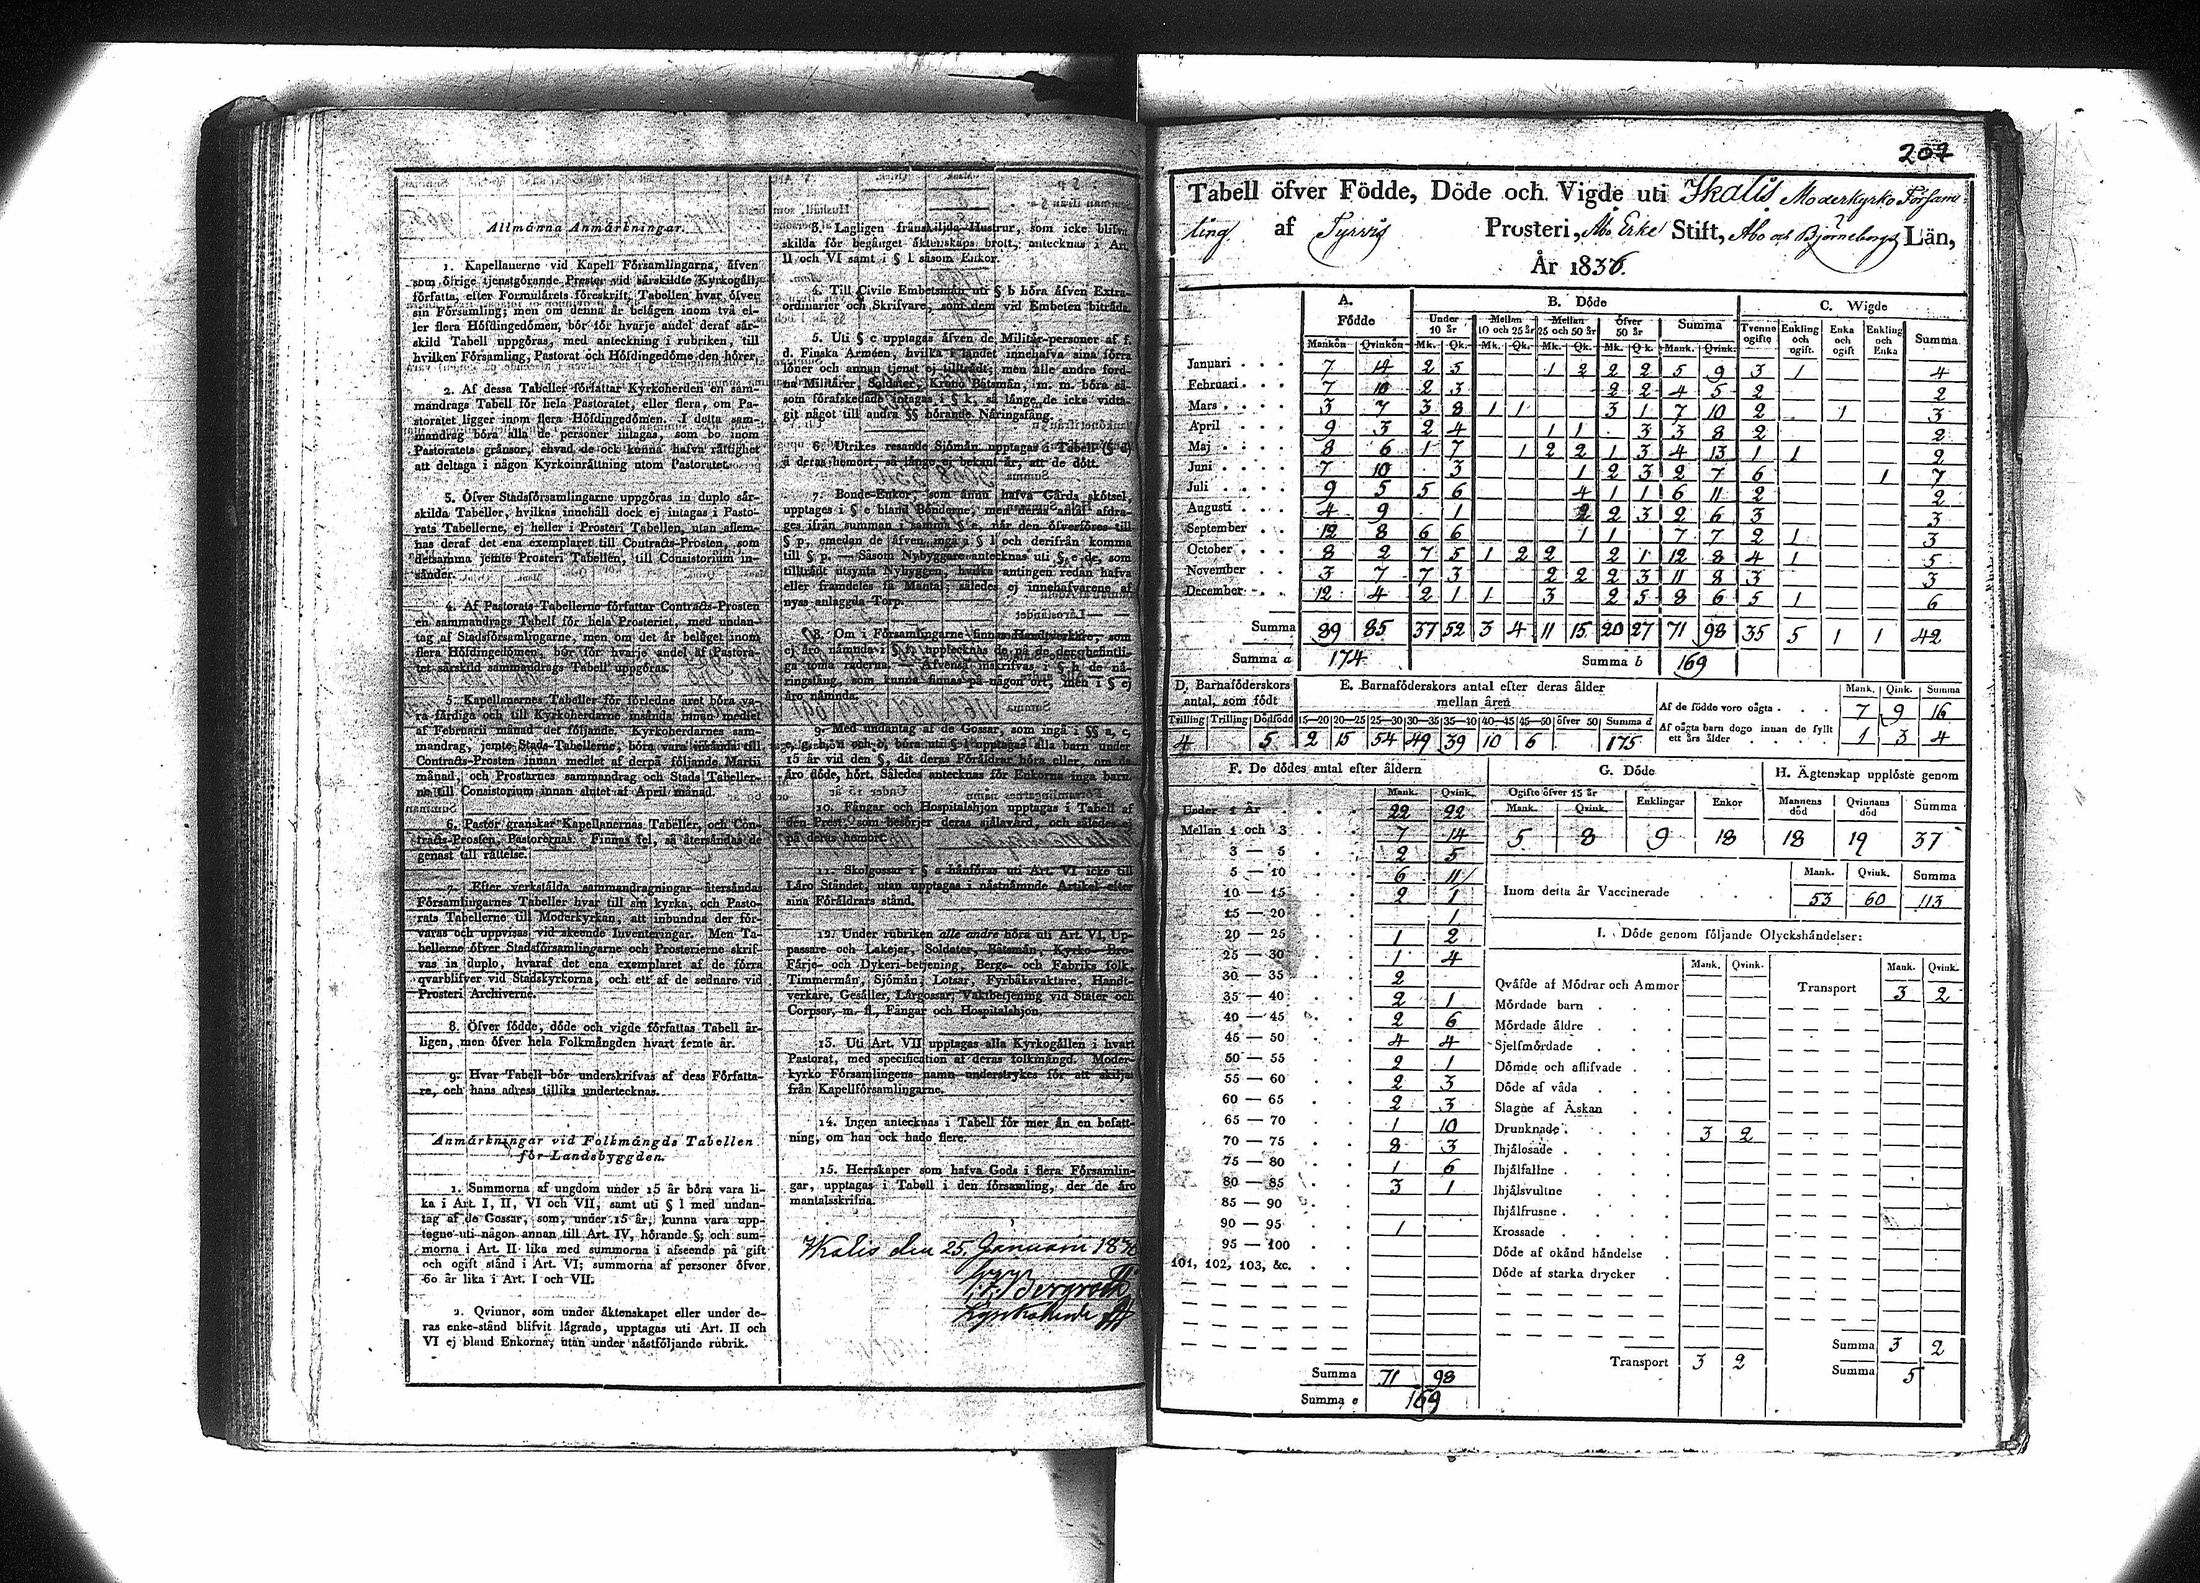 Allmänna Anmärkningar.
1. Kapellanerne vid Kapell Församlingarna, äfven
som öfrige tjenstgörande Prester vid särskildte Kyrkogäll,
författa, efter Formulärets föreskrift, Tabellen hvar öfver
sin Församling; men om denna är belägen inom två el-
ler flera Höfdingedömen, bör för hvarje andel deraf sär-
skild Tabell uppgöras, med anteckning i rubriken, till
hvilken Församling, Pastorat och Höfdingedöme den hörer.
2. Af dessa Tabeller författar Kyrkoherden en sam-
mandrags Tabell för hela Pastoratet, eller flera, om Pa-
storatet ligger inom flera Höfdingedömen. I detta sam-
mandrag böra alla de personer intagas, som bo inom
Pastoratets gränsor, ehvad de ock kunna hafva rättighet
att deltaga i någon Kyrkoinrättning utom Pastoratet.
3. Öfver Stadsförsamlingarne uppgöras in duplo sär-
skilda Tabeller, hvilkas innehåll dock ej intagas i Pasto-
rats Tabellerne, ej heller i Prosteri Tabellen, utan aflem-
nas deraf det ena exemplaret till Contracts-Prosten, som
detsamma jemte Prosteri Tabellen, till Consistorium in-
sänder.
4. Af Pastorats-Tabellerne författar Contracts-Prosten
en sammandrags Tabell för hela Prosteriet, med undan-
tag af Stadsförsamlingarne, men om det är beläget inom
flera Höfdingedömen, bör för hvarje andel af Pastora-
tet särskild sammandrags Tabell uppgöras.
5. Kapellanernes Tabeller för förledne året böra va-
ra färdiga och till Kyrkoherdarne insända innan medlet
af Februarii månad det följande. Kyrkoherdarnes sam-
mandrag, jemte Stads-Tabellerne, böra vara insända till
Contracts-Prosten innan medlet af derpå följande Martii
månad, och Prostarnes sammandrag och Stads Tabeller-
ne till Consistorium innan slutet af April månad.
6. Pastor granskar Kapellanernas Tabeller, och Con-
tracts-Prosten, Pastorernas. Finnas fel, så återsändas de
genast till rättelse.
7. Efter verkställda sammandragningar återsändas
Församlingarnes Tabeller hvar till sin kyrka, och Pasto-
rats Tabellerne till Moderkyrkan, att inbundna der för-
varas och uppvisas vid skeende Inventeringar. Men Ta-
bellerne öfver Stadsförsamlingarne och Prosterierne skrif-
vas in duplo, hvaraf det ena exemplaret af de förra
qvarblifver vid Stadskyrkorna, och ett af de sednare vid
Prosteri Archiverne.
8. Öfver födde, döde och vigde författas Tabell år-
ligen, men öfver hela Folkmängden hvart femte år.
9. Hvar Tabell bör underskrifvas af dess Författa-
re, och hans adress tillika undertecknas.
Anmärkningar vid Folkmängds Tabellen
för Landsbyggden.
1. Summorna af ungdom under 15 år böra vara li-
ka i Art. I, II, VI och VII, samt uti § l med undan-
tag af de Gossar, som, under 15 år, kunna vara upp-
tagne uti någon annan till Art. IV, hörande §; och sum-
morna i Art. II lika med summorna i afseende på gift
och ogift stånd i Art. VI; summorna af personer öfver
60 år lika i Art. I och VII.
2. Qvinnor, som under äktenskapet eller under de-
ras enke-stånd blifvit lägrade, upptagas uti Art. II och
VI ej bland Enkorna, utan under nästföljande rubrik.
3. Lagligen frånskiljda Hustrur, som icke blifvit
skilda för begånget äktenskaps brott, antecknas i Art.
II och VI samt i § l såsom Enkor.
4. Till Civile Embetsmän uti § b höra äfven Extra-
ordinarier och Skrifvare, som dem vid Embeten biträda.
5. Uti § c upptagas äfven de Militär-personer af f.
d. Finska Arméen, hvilka i landet innehafva sina förra
löner och annan tjenst ej tillträdt; men alle andre ford-
na Militärer, Soldater, Krono Båtsmän, m. m. böra så-
som förafskedade intagas i § k, så länge de icke vidta-
git något till andra §§ hörande Näringsfång.
6. Utrikes resande Sjömän upptagas i Tabell (§ d)
å deras hemort, så länge ej bekant är, att de dött.
7. Bonde-Enkor, som ännu hafva Gårds skötsel,
upptages i § e bland Bönderne, men deras antal afdra-
ges ifrån summan i samma § e, når den öfverföres till
§ p, emedan de äfven ingå i § l och derifrån komma
till § p. — Såsom Nybyggare antecknas uti § e de, som
tillträdt utsynta Nybyggen, hvilka antingen redan hafva
eller framdeles få Mantal; således ej innehafvarena af
nyss anlaggda Torp.
8. Om i Församlingarne finnas Handtverkare, som
ej äro nämnda i § f, upptecknas de på de der befintli-
ga toma raderna. — Äfvenså inskrifvas i § h de nä-
ringsfång, som kunna finnas på någon ort, men i § ej
äro nämnda.
9. Med undantag af de Gossar, som ingå i §§ a, c,
e, g, h, n och o, böra uti § l upptagas alla barn under
15 år vid den §, dit deras Föräldrar höra eller, om de
äro döde, hört. Således antecknas för Enkorna inga barn.
10. Fångar och Hospitalshjon upptagas i Tabell af
den Prest, som besörjer deras själavård, och således ej
på deras hemort.
11. Skolgossar i § a hänföras uti Art. VI icke till
Läro Ståndet, utan upptagas i nästnämnde Artikel efter
sina Föräldrars stånd.
12. Under rubriken alle andre höra uti Art. VI, Up-
passare och Lakejer, Soldater, Båtsmän, Kyrko-Bro-
Färje- och Dykeri-betjening, Bergs- och Fabriks folk,
Timmermän, Sjömän, Lotsar, Fyrbåksvaktare, Handt-
verkare, Gesäller, Lärgossar, Vaktbetjening vid Stater och
Corpser, m. fl., Fångar och Hospitalshjon.
13. Uti Art. VII upptagas alla Kyrkogällen i hvart
Pastorat, med specification af deras folkmängd. Moder-
kyrko Församlingens namn understrykes för att skiljas
från Kapellförsamlingarne.
14. Ingen antecknas i Tabell för mer än en befatt-
ning, om han ock hade flere.
15. Herrskaper som hafva Gods i flera Församlin-
gar, upptagas i Tabell i den församling, der de äro
mantalsskrifna.
Ikalis den 25 Januari
Kyrkoherde
207
Tabell öfver Födde, Döde och Vigde uti Ikalis Moderkyrko Försam-
ling af Tyrvis Prosteri, Åbo Erke Stift, Åbo och Björneborgs Län,
År 1836.
A. Födde B. Döde C. Wigde
Under 10 år Mellan 10 och 25 år Mellan 25 och 50 år Öfver 50 år Summa Tvenne ogifte Enkling och ogift. Enka och ogift Enkling och Enka Summa
Mankön Qvinkön Mk. Qk. Mk. Qk. Mk. Qk. Mk. Qk. Mank. Qvink.
Januari 7 14 2 5 1 2 2 2 5 9 3 1 4
Februari 7 10 2 3 2 2 4 5 2 2
Mars 3 7 3 8 1 1 3 1 7 10 2 1 3
April 9 3 2 4 1 1 3 3 8 2 2
Maj 8 6 1 7 1 2 2 1 3 4 13 1 1 2
Juni 7 10 3 1 2 3 2 7 6 1 7
Juli 9 5 5 6 4 1 1 6 11 2 2
Augusti 4 9 1 2 2 3 2 6 3 3
September 12 8 6 6 1 1 7 7 2 1 3
October 8 2 7 5 1 2 2 2 1 12 8 4 1 5
November 3 7 7 3 2 2 2 3 11 8 3 3
December 12 4 2 1 1 3 2 5 8 6 5 1 6
Summa 89 85 37 52 3 4 11 15 20 27 71 98 35 5 1 1 42
Summa a 174 Summa b 169
D. Barnaföderskors antal, som födt
Trilling Trilling Dödfödd
4 5
E. Barnaföderskors antal efter deras ålder mellan åren
15—20 20—25 25—30 30—35 35—40 40—45 45—50 öfver 50 Summa d
2 15 54 49 39 10 6 175
Mank. Qink. Summa
Af de födde voro oägta 7 9 16
Af oägta barn dogo innan de fyllt
ett års ålder 1 3 4
F. De dödes antal efter åldern
Mank. Qvink.
Under 1 År 22 22
Mellan 1 och 3 7 14
3 — 5 2 5
5 — 10 6 11
10 — 15 2 1
15 — 20 1
20 — 25 1 2
25 — 30 1 4
30 — 35 2
35 — 40 2 1
40 — 45 2 6
45 — 50 4 4
50 — 55 2 1
55 — 60 2 3
60 — 65 2 3
65 — 70 1 10
70 — 75 8 3
75 — 80 1 6
80 — 85 3 1
85 — 90
90 — 95 1
95 — 100
101, 102, 103, &c.
Summa 71 98
Summa e 169
G. Döde
Ogifte öfver 15 år Enklingar Enkor
Mank. Qvink.
5 8 9 18
H. Ägtenskap upplöste genom
Mannens död Qvinnans död Summa
18 19 37
Mank. Qvink. Summa
Inom detta år Vaccinerade 53 60 113
I. Döde genom följande Olyckshändelser:
Mank. Qvink.
Qväfde af Mödrar och Ammor
Mördade barn
Mördade äldre
Sjelfmördade
Dömde och aflifvade
Döde af våda
Slagne af Åskan
Drunknade 3 2
Ihjälosade
Ihjälfallne
Ihjälsvultne
Ihjälfrusne
Krossade
Döde af okänd händelse
Döde af starka drycker
Transport 3 2
Mank. Qvink.
Transport 3 2
Summa 3 2
Summa 5